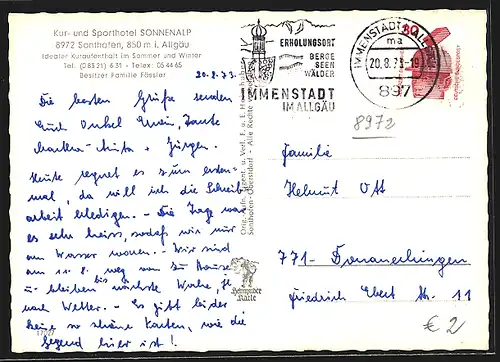 Kur- und Sporthotel SONNENALP
8972 Sonthofen, 850 m i. Allgäu
Idealer Kuraufenthalt im Sommer und Winter
Tel. (0 83 21) 6 31 - Telex: 05 44 65
Besitzer Familie Fässler
20.8.73.
Die besten Grüße senden
Euch Onkel Tante
Martha - Anita + Jürgen.
Heute regnet es zum ersten-
mal, da will ich die Schreib-
arbeit erledigen. - Die Tage war
es sehr heiss, sodaß wir nur
am Wasser waren. - Wir sind
am 11.8. weg von zu Hause
u. bleiben bis nächste Woche, je
nach Wetter. - Es gibt leider
keine so schöne Karten, wie die
Gegend hier ist!
ERHOLUNGSORT
BERGE
SEEN
WÄLDER
IMMENSTADT
IM ALLGÄU
IMMENSTADT, ALLG
ma
20.8.73-19
897
8972
Familie
Helmut Ott
771 - Donaueschingen
Friedrich Ebert Str. 11
€ 2